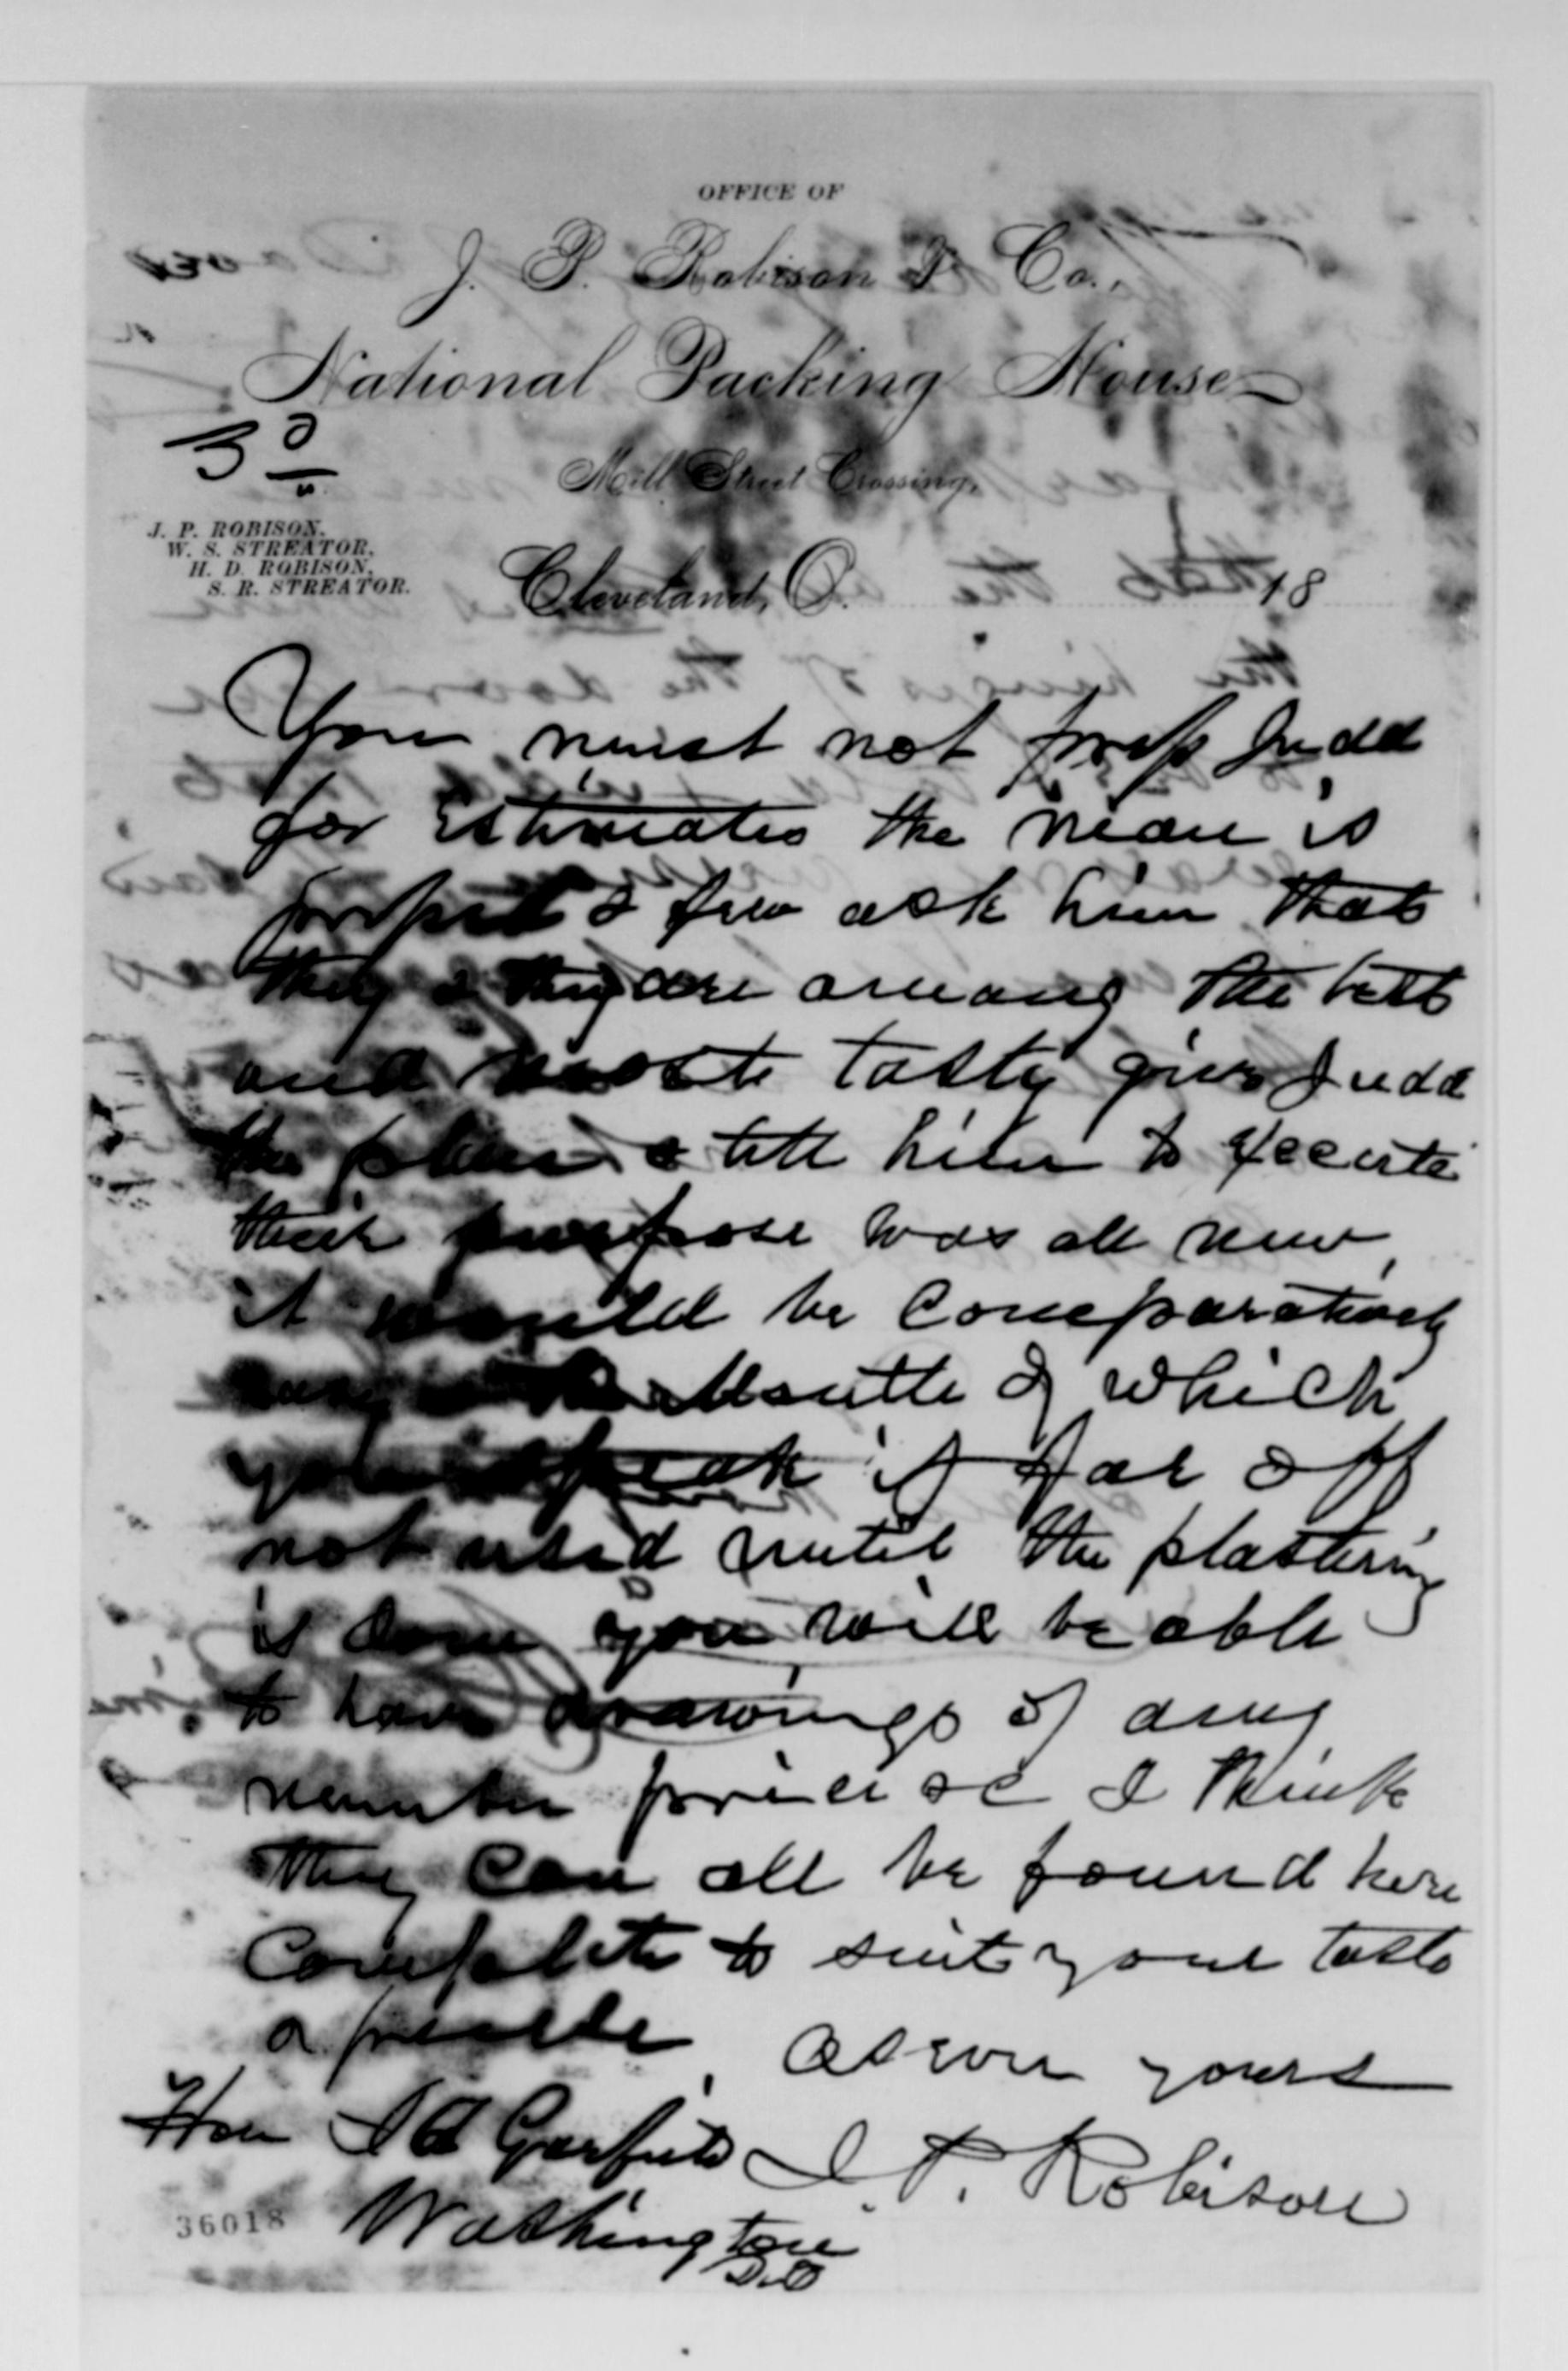 OFFICE OF
J. P. Robison & Co.,
National Packing House
3d
Mill Street Crossing,
J. P. ROBISON.
W. S. STREATOR.
H. D. ROBISON.
S. R. STREATOR.
Cleveland, O. 18
You must not Judd
for Estimates the man is
& few ask him that
they & they are among the best
and moste tasty give Judd
the plan & tell him to execute
their purpose was all new
it would be comparatively
easy the Mantle of which
you speak is far off
not used until the plastering
is done you will be able
to have drawings of any
number price &c I think
they can all be found here
Complete to suit your taste
As ever yours
Hon J A Garfield J. P. Robison
Washington
D.C
36018